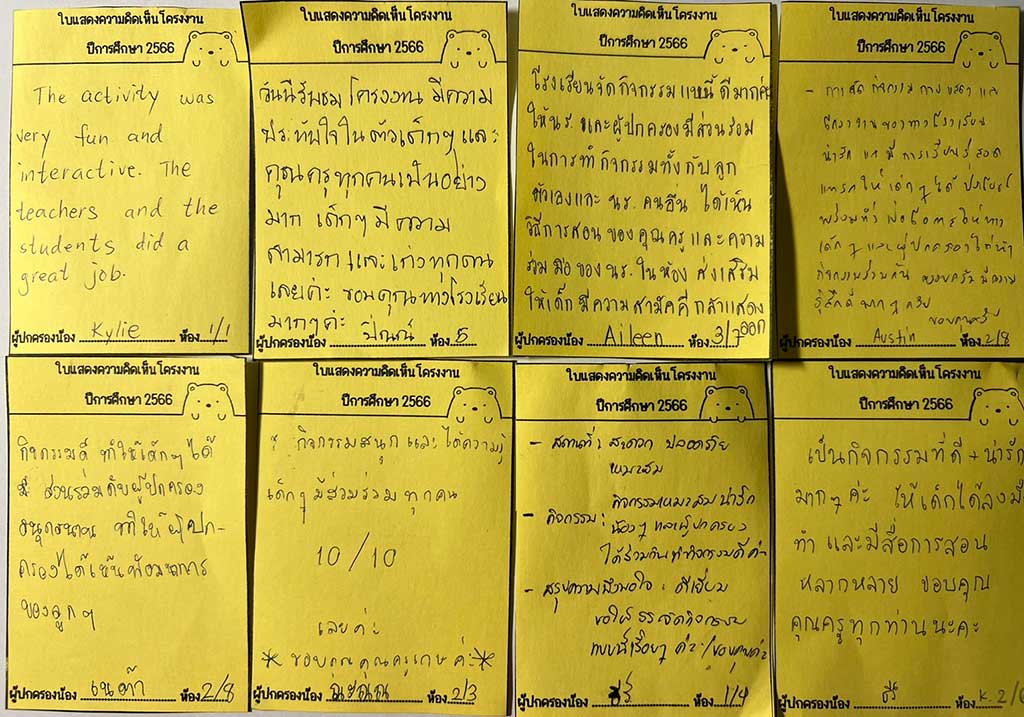 ใบแสดงความคิดเห็นโครงงาน
ปีการศึกษา 2566
The activity was
very fun and
interactive. The
teachers and the
students did a
great job.
ผู้ปกครองน้อง Kylie ห้อง 1/1
ใบแสดงความคิดเห็นโครงงาน
ปีการศึกษา 2566
วันนี้รับชมโครงงาน มีความ
ประทับใจในตัวเด็กๆ และ
คุณครูทุกคนเป็นอย่าง
มาก เด็กๆ มีความ
สามารถ และเก่งทุกคน
เลยค่ะ ขอบคุณทางโรงเรียน
มากๆค่ะ
ผู้ปกครองน้อง ห้อง 5
ใบแสดงความคิดเห็นโครงงาน
ปีการศึกษา 2566
โรงเรียนจัดกิจกรรมแบบนี้ ดีมากค่ะ
ให้นร. และผู้ปกครองมีส่วนร่วม
ในการทำกิจกรรมทั้งกับลูก
ตัวเองและ นร. คนอื่น ได้เห็น
วิธีการสอนของคุณครู และความ
ร่วมมือของนร. ในห้อง ส่งเสริม
ให้เด็กมีความสามัคคี กล้าแสดง
ออก
ผู้ปกครองน้อง Aileen ห้อง 3/7
ใบแสดงความคิดเห็นโครงงาน
ปีการศึกษา 2566
- การจัดกิจกรรม
น่ารัก
เด็กๆ และผู้ปกครองได้ทำ
กิจกรรมร่วมกัน
รู้สึกดีมากๆ ครับ
ขอบคุณครับ
ผู้ปกครองน้อง Austin ห้อง 2/8
ใบแสดงความคิดเห็นโครงงาน
ปีการศึกษา 2566
กิจกรรมดี ทำให้เด็กๆ ได้
มีส่วนร่วมกับผู้ปกครอง
สนุกสนาน ทำให้ผู้ปก-
ครองได้เห็นพัฒนาการ
ของลูกๆ
ผู้ปกครองน้อง เนต้า ห้อง 2/8
ใบแสดงความคิดเห็นโครงงาน
ปีการศึกษา 2566
กิจกรรมสนุกและได้ความรู้
เด็กๆ มีส่วนร่วมทุกคน
10/10
เลยค่ะ
*ขอบคุณคุณครูเกษ ค่ะ*
ผู้ปกครองน้อง ห้อง 2/3
ใบแสดงความคิดเห็นโครงงาน
ปีการศึกษา 2566
- สถานที่ : สะดวก ปลอดภัย
เหมาะสม
- กิจกรรม : กิจกรรมเหมาะสมน่ารัก
น้องๆ และผู้ปกครอง
ได้ร่วมกันทำกิจกรรมดีค่ะ
- สรุปความพึงพอใจ : ดีเยี่ยม
ขอให้ รร. จัดกิจกรรม
แบบนี้เรื่อยๆ ค่ะ/ขอบคุณค่ะ
ผู้ปกครองน้อง ห้อง 1/4
ใบแสดงความคิดเห็นโครงงาน
ปีการศึกษา 2566
เป็นกิจกรรมที่ดี + น่ารัก
มากๆ ค่ะ ให้เด็กได้ลงมือ
ทำ และมีสื่อการสอน
หลากหลาย ขอบคุณ
คุณครูทุกท่านนะคะ
ผู้ปกครองน้อง ห้อง K. 2/